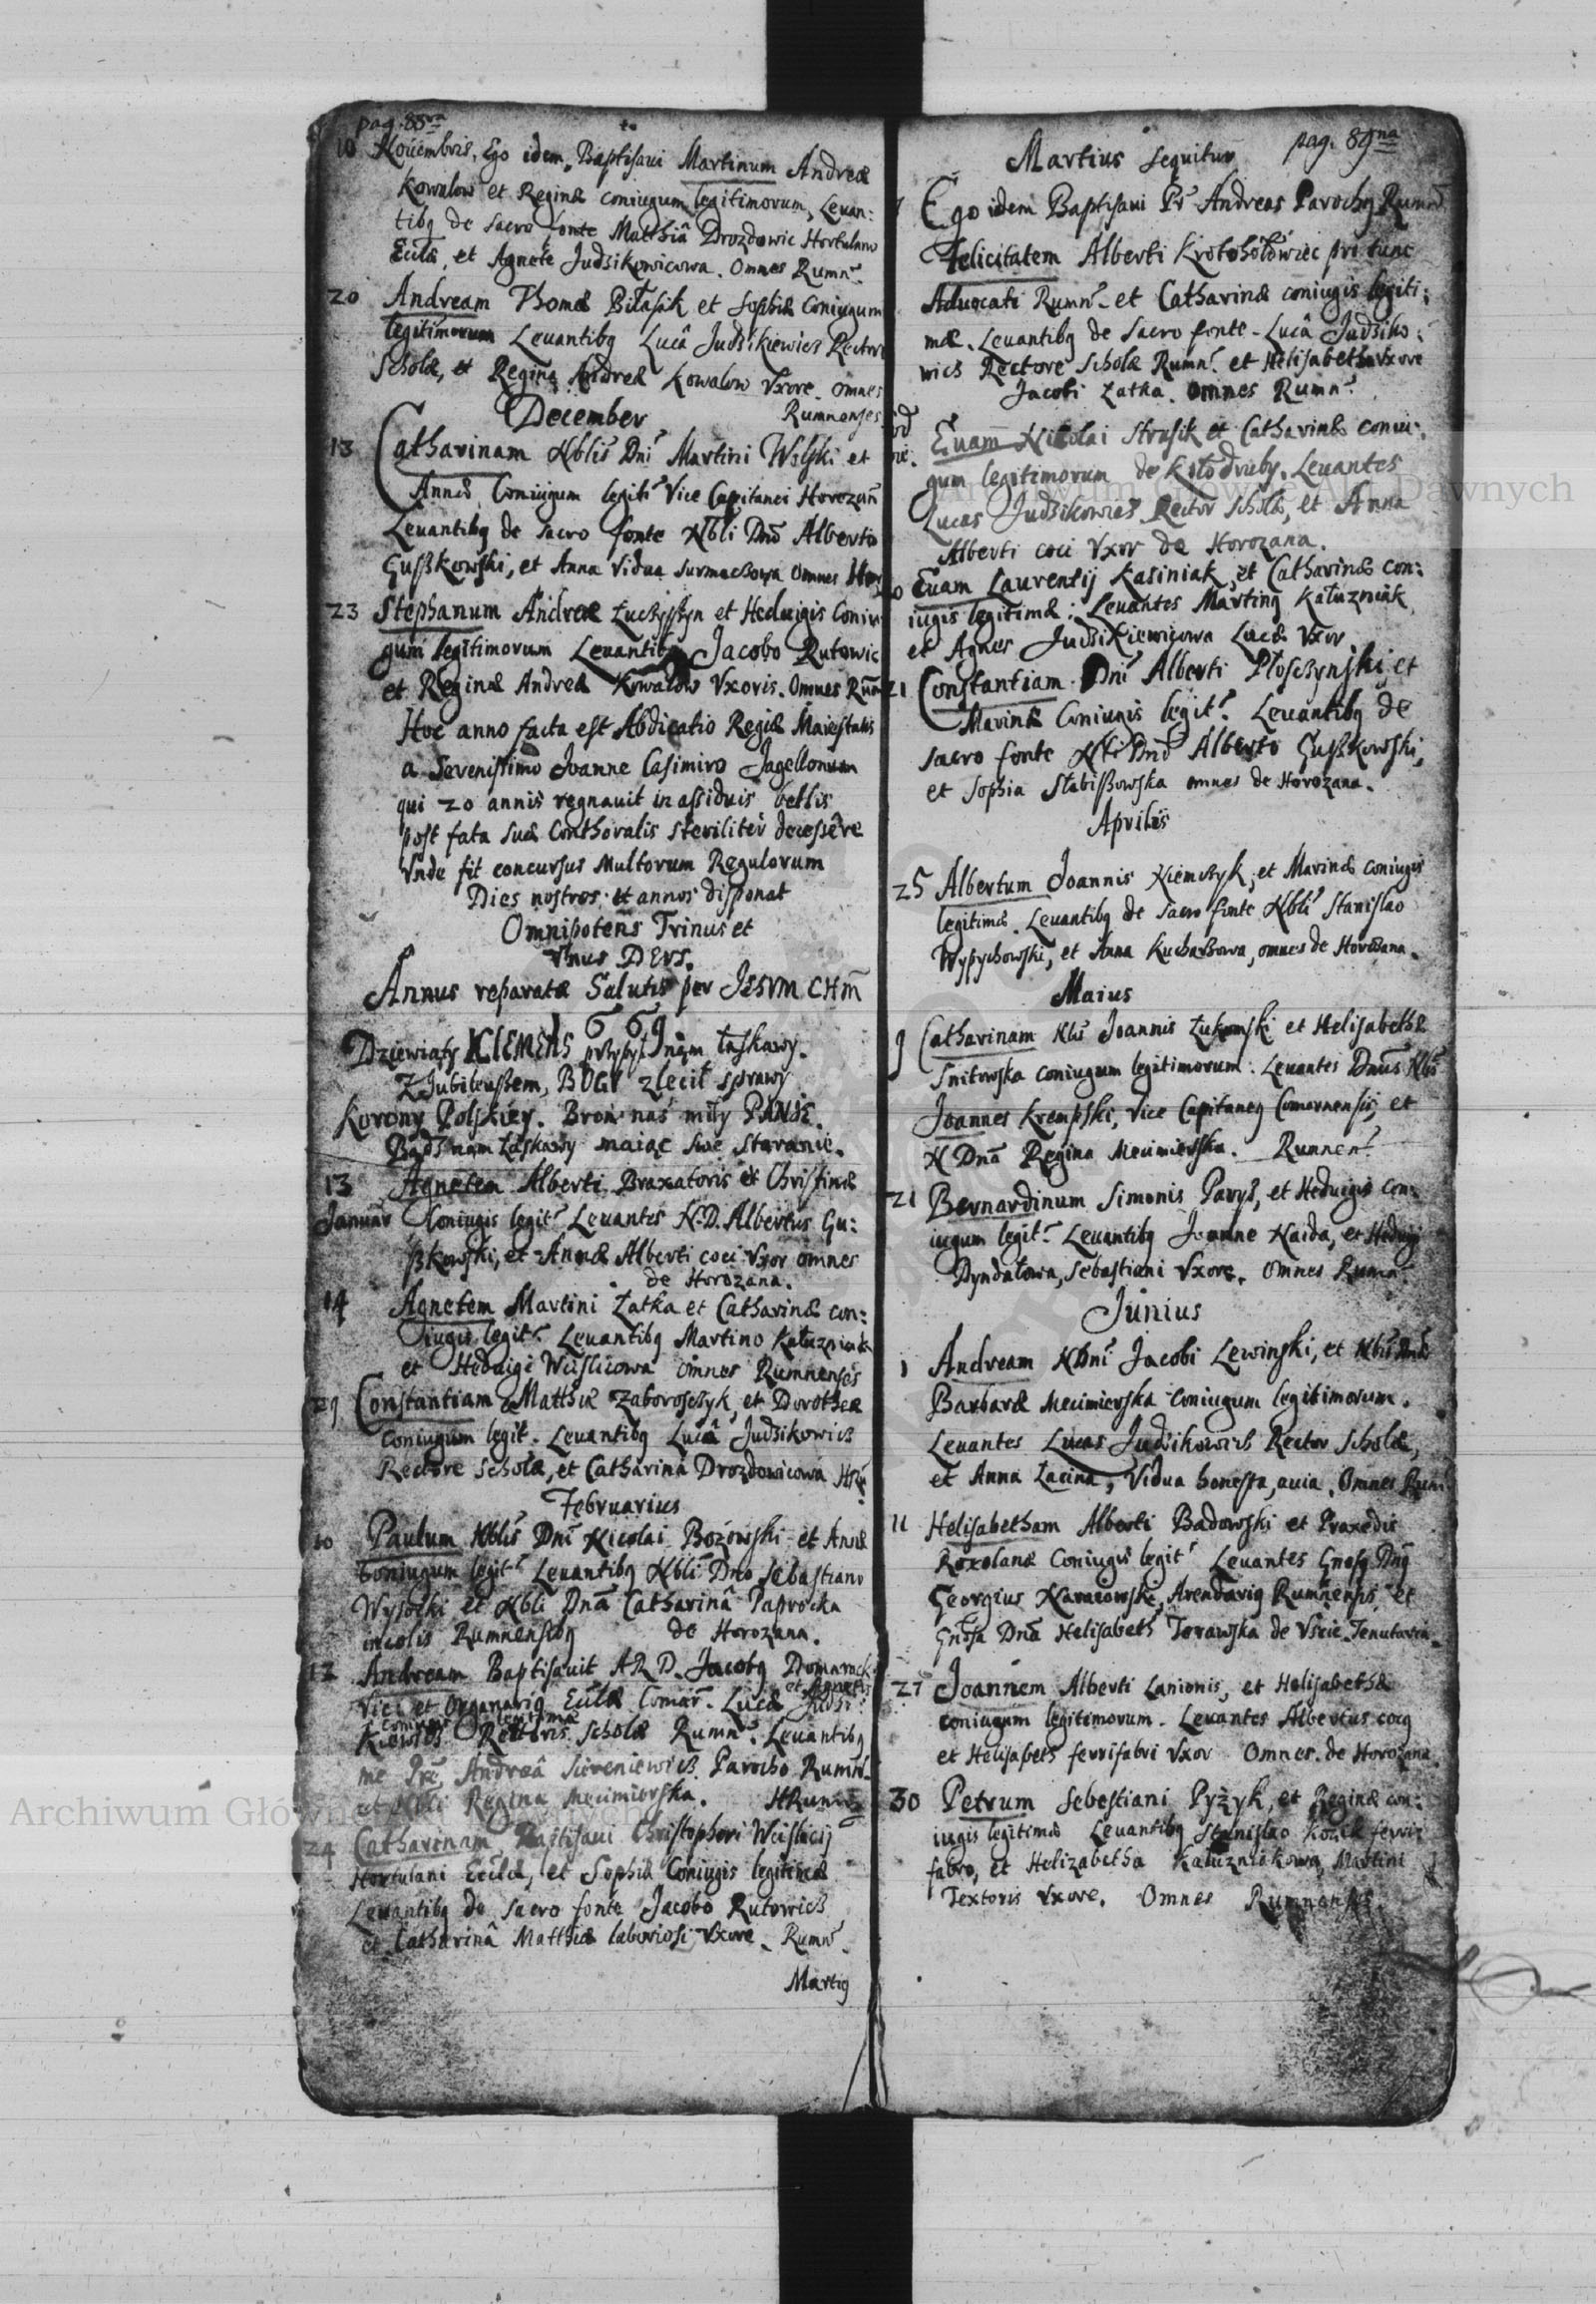 pag. 88va
10 Nouembris. Ego idem Baptisaui Martinum Andreæ
Kowalow et Reginæ coniugum legitimorum, Leuan:
tibq de sacro fonte Matthiâ Drozdowic Hortulano
Ecclæ, et Agnete Judzikowicowa. Omnes Rumn.
20 Andream Thomæ Bitasik et Sophiæ Coniugum
legitimorum Leuantibq Lucâ Judzikiewicz Rectore
Scholæ, et Reginâ Andreæ Kowalow Vxore. omnes
Rumnenses
December
13 Catharinam Nblis Dni Martini Wolski et
Annæ Coniugum legiti Vice Capitanei Horozañ
Leuantibq de sacro fonte Nbli Dno Alberto
Gußkowski, et Anna Vidua Surmaczowa Omnes Hor
23 Stephanum Andreæ et Heduigis Coniu
gum legitimorum Leuantibq Jacobo Rutowic
et Reginæ Andreæ Kowalow Vxoris. Omnes Rum
Hoc anno facta est Abdicatio Regiæ Maiestatis
a Serenissimo Joanne Casimiro Jagellonum
qui 20 annis regnauit in assiduis bellis
post fata suæ Conthoralis steriliter decessêre
Vnde fit concursus Multorum Regulorum
Dies nostros et annos disponat
Omnipotens Trinus et
Vnus DEVS.
Annus reparatæ Salutis per JESVM CHm
1669
Dziewiąty KLEMENS przybył nąm łaskawy.
Z Jubileußem, BOGV zlecił sprawy
Korony Polskiey. Broń naś miły PANIE.
Bądź nam łaskawy maiąc swe staranie.
13 Agnetem Alberti Braxatoris et Christinæ
Januar Coniugis legit. Leuantes N. D. Albertus Gu:
ßkowski, et Annæ Alberti coci Vxor omnes
de Horozana.
14 Agnetem Martini Łatka et Catharinæ con:
iugis legit. Leuantibq Martino Kałuzniak
et Heduigi Wiislicowa omnes Rumnenses
29 Constantiam Matthiæ Zaboroszczyk, et Dorotheæ
coniugum legit. Leuantibq Lucâ Judzikowicz
Rectore scholæ, et Catharinâ Drozdowicowa
Februarius
10 Paulum Nblis Dni Nicolai Bożowski et Annæ
Coniugum legit. Leuantibq Nbli Dno Sebastiano
Wysocki et Nbli Dnâ Catharinâ Paprocka
incolis Rumnensibq de Horozana.
12 Andream Baptisauit A R D. Jacobq
Vici et Organariq Ecclæ Comar. Lucæ Judzi: et Agnetis
kiewicz coniugis legitimæ Rectoris scholæ Rumn. Leuantibq
me Pre Andreâ Siereniewicz Parocho Rumn.
et Nbli Regina Mecimierska.
24 Catharinam Baptisaui Christophori Wiislicij
Hortulani Ecclæ, et Sophiæ Coniugis legitimæ
Leuantibq de sacro fonte Jacobo Rutowicz
et Catharinâ Matthiæ laboriosi Vxore. Rumn.
Martiq
pag. 89na
Martius sequitur
Ego idem Baptisaui Pr Andreas Parochq Rumn
Felicitatem Alberti Krotohołowiec pro tunc
Aduocati Rumn. et Catharinæ coniugis legiti:
mæ. Leuantibq de sacro fonte Lucâ Judziko:
wicz Rectore Scholæ Rumn. et Helisabetha Vxore
Jacobi Łatka. Omnes Rumn.
Euam Nicolai Strusik et Catharinæ coniu:
gum legitimorum de Kołodruby. Leuantes
Lucas Judzikowicz Rector scholæ, et Anna
Alberti coci Vxor de Horozana.
Euam Laurentij Kasiniak et Catharinæ con:
iugis legitimæ: Leuantes Martinq Kałuzniak
et Agnes Judzikiewicowa Lucæ Vxor
21 Constantiam Dni Alberti Płoszczynski et
Marinæ Coniugis legit. Leuantibq de
sacro fonte Nbli Dno Alberto Gußkowski,
et Sophia Słabißowska omnes de Horozana.
Aprilis
25 Albertum Joannis Niemczyk, et Marinæ coniugis
legitimæ. Leuantibq de sacro fonte Nbli Stanislao
Wypychowski, et Anna Kucharzowa, omnes de Horozana.
Maius
9 Catharinam Nblis Joannis Żukowski et Helisabethæ
Snitowska coniugum legitimorum. Leuantes Dnus Nblis
Joannes Krempski, Vice Capitaneq Comarnensis, et
N Dna Regina Mecimierska. Rumnen.
21 Bernardinum Simonis Parys, et Heduigis con:
iugum legit. Leuantibq Joanne Naida, et Heduigi
Dyndałowa, Sebastiani Vxore. Omnes Rumn.
Junius
1 Andream N Dni Jacobi Lewinski, et Nblis Dnæ
Barbaræ Mecimierska coniugum legitimorum.
Leuantes Lucas Judzikowicz Rector Scholæ,
et Anna Łacina, Vidua honesta, auia. Omnes Rum
11 Helisabetham Alberti Badowski et Praxedis
Roxolanæ Coniugis legit. Leuantes Gnosq Dnq
Georgius Naraiowski, Arendariq Rumnensis et
Gnosa Dna Helisabeth Torawska de Vście Tenutaria.
27 Joannem Alberti Lanionis, et Helisabethæ
coniugum legitimorum. Leuantes Albertus cocq
et Helisabeth ferrifabri Vxor Omnes de Horozana
30 Petrum Sebestiani Pyżyk, et Reginæ con:
iugis legitimæ Leuantibq Stanislao Koział ferri
fabro, et Helizabetha Kałuzniakowa, Martini
Textoris Vxore. Omnes Rumnenses.
Archiwum Główne Akt Dawnych
Archiwum Główne Akt Dawnych